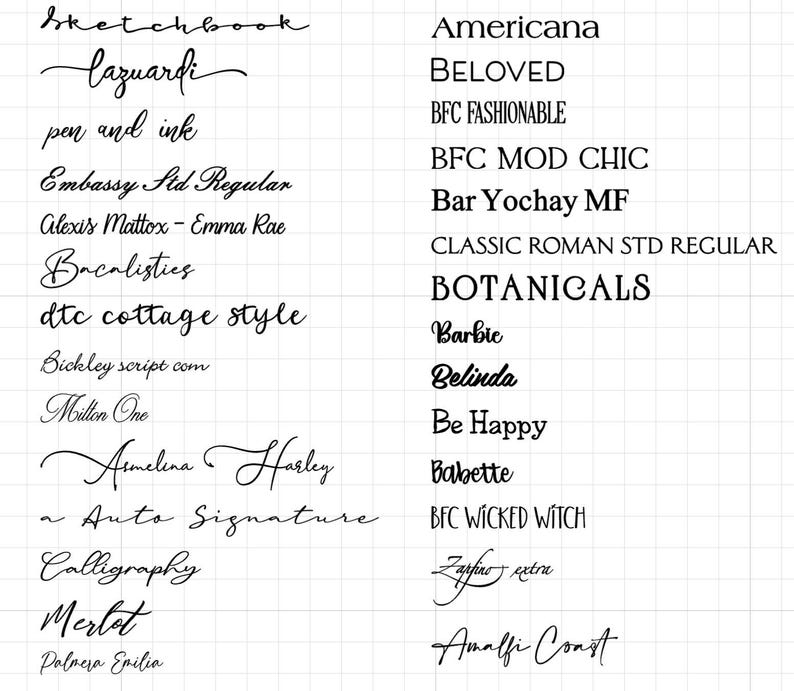 sketchbook
lazuardi
pen and ink
Embassy Std Regular
Alexis Mattox - Emma Rae
Bacalisties
dtc cottage style
Bickley script com
Milton One
Asmelina Harley
a Auto Signature
Calligraphy
Merlot
Palmera Emilia
Americana
BELOVED
BFC FASHIONABLE
BFC MOD CHIC
Bar Yochay MF
CLASSIC ROMAN STD REGULAR
BOTANICALS
Barbie
Belinda
Be Happy
Babette
BFC WICKED WITCH
Zapfino extra
Amalfi Coast